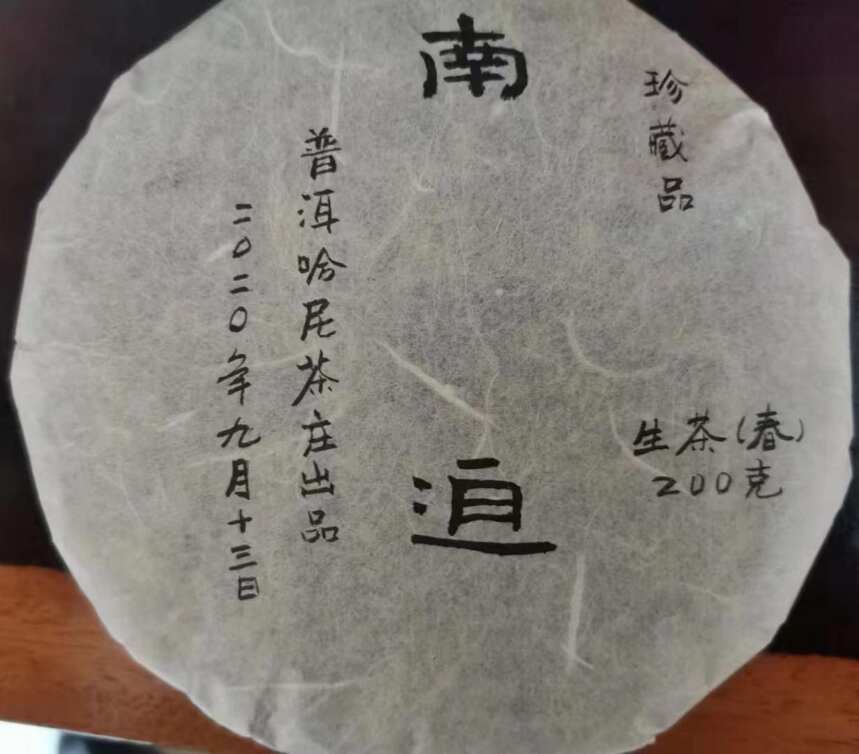 珍藏品
生茶(春)
200克
南迫
普洱哈尼茶庄出品
二〇二〇年九月十三日